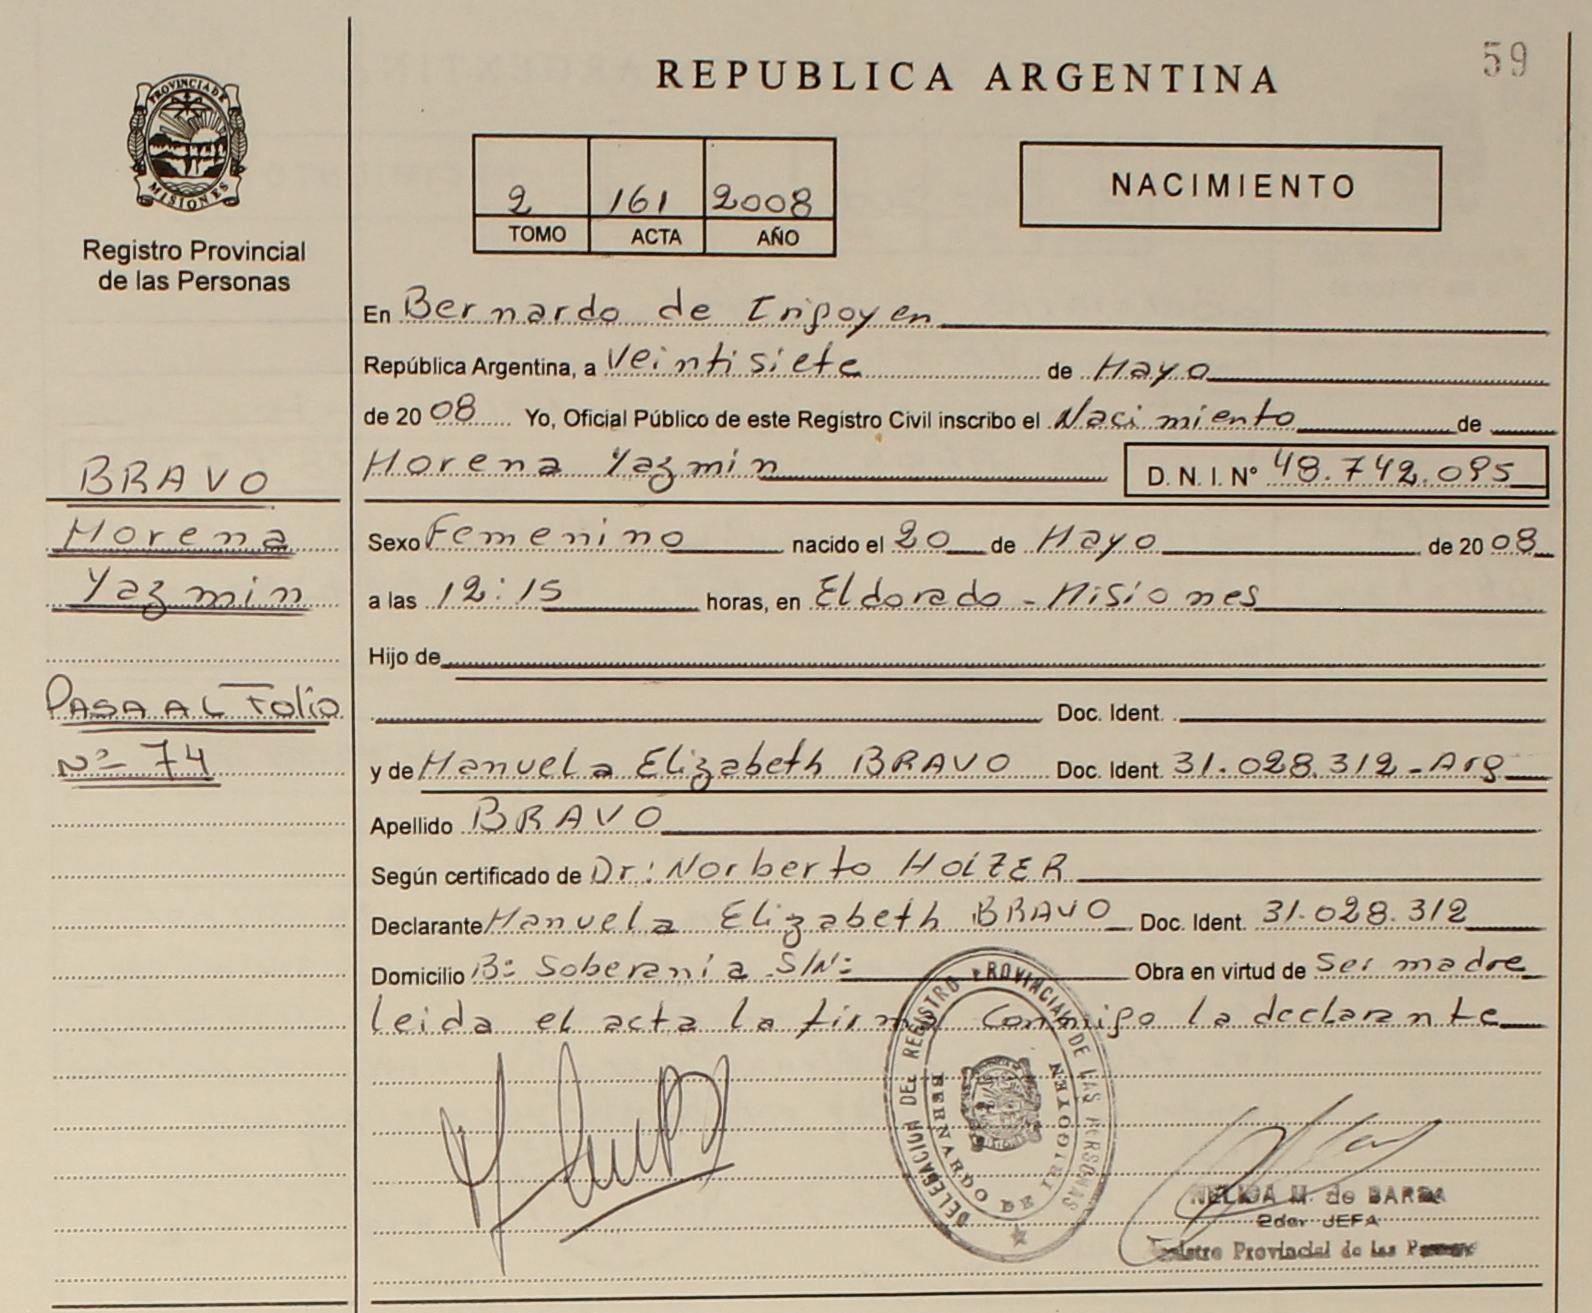 59
REPUBLICA ARGENTINA
PROVINCIA DE
MISIONES
Registro Provincial
de las Personas
2 161 2008
TOMO ACTA AÑO
NACIMIENTO
En Bernardo de Irigoyen
República Argentina, a Veintisiete de Mayo
de 2008 Yo, Oficial Público de este Registro Civil inscribo el Nacimiento de
Morena Yazmin D. N. I. Nº 48.742.095
BRAVO
Morena
Yazmin
PASA AL Folio
Nº 74
Sexo Femenino nacido el 20 de Mayo de 2008
a las 12:15 horas, en Eldorado - Misiones
Hijo de
Doc. Ident.
y de Manuela Elizabeth BRAVO Doc. Ident. 31.028.312 - Arg
Apellido BRAVO
Según certificado de Dr: Norberto HOLZER
Declarante Manuela Elizabeth BRAVO Doc. Ident. 31.028.312
Domicilio Bº Soberanía S/Nº Obra en virtud de Ser madre
leida el acta la firma conmigo la declarante
DELEGACION DEL REGISTRO PROVINCIAL DE LAS PERSONAS
BERNARDO DE IRIGOYEN
NELIDA M. de
2da. JEFA
Provincial de las